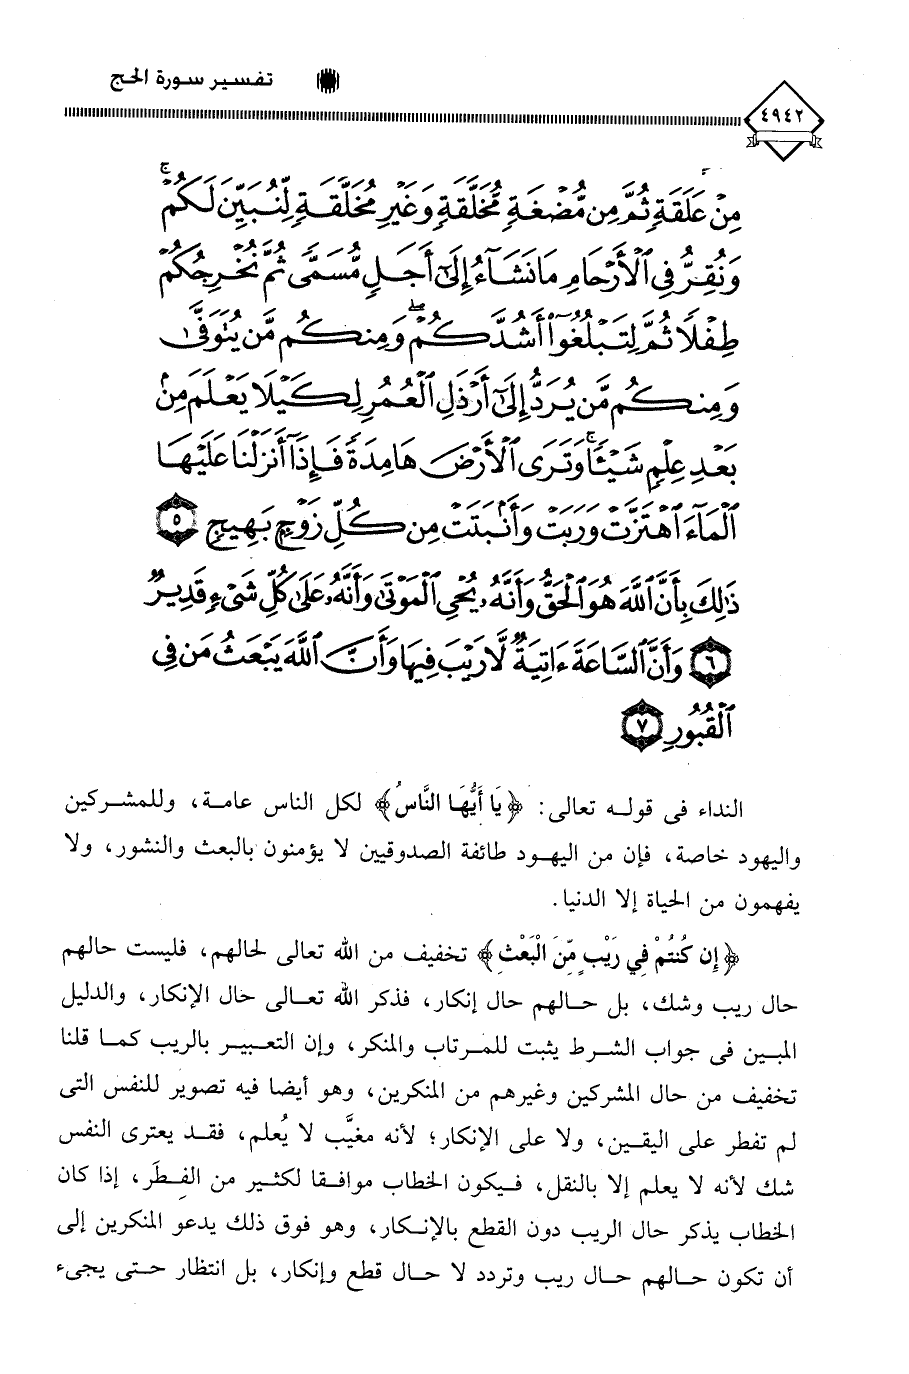 تفسير سورة الحج
٤٩٤٢
مِنْ عَلَقَةٍ ثُمَّ مِن مُّضْغَةٍ مُّخَلَّقَةٍ وَغَيْرِ مُخَلَّقَةٍ لِّنُبَيِّنَ لَكُمْ ۚ
وَنُقِرُّ فِي ٱلْأَرْحَامِ مَا نَشَآءُ إِلَىٰٓ أَجَلٍ مُّسَمًّى ثُمَّ نُخْرِجُكُمْ
طِفْلًا ثُمَّ لِتَبْلُغُوٓا۟ أَشُدَّكُمْ ۖ وَمِنكُم مَّن يُتَوَفَّىٰ
وَمِنكُم مَّن يُرَدُّ إِلَىٰٓ أَرْذَلِ ٱلْعُمُرِ لِكَيْلَا يَعْلَمَ مِنۢ
بَعْدِ عِلْمٍ شَيْـًٔا ۚ وَتَرَى ٱلْأَرْضَ هَامِدَةً فَإِذَآ أَنزَلْنَا عَلَيْهَا
ٱلْمَآءَ ٱهْتَزَّتْ وَرَبَتْ وَأَنۢبَتَتْ مِن كُلِّ زَوْجٍۭ بَهِيجٍ ٥
ذَٰلِكَ بِأَنَّ ٱللَّهَ هُوَ ٱلْحَقُّ وَأَنَّهُۥ يُحْىِ ٱلْمَوْتَىٰ وَأَنَّهُۥ عَلَىٰ كُلِّ شَىْءٍ قَدِيرٌ
٦ وَأَنَّ ٱلسَّاعَةَ ءَاتِيَةٌ لَّا رَيْبَ فِيهَا وَأَنَّ ٱللَّهَ يَبْعَثُ مَن فِى
ٱلْقُبُورِ ٧
النداء فى قوله تعالى: ﴿يَا أَيُّهَا النَّاسُ﴾ لكل الناس عامة، وللمشركين
واليهود خاصة، فإن من اليهود طائفة الصدوقيين لا يؤمنون بالبعث والنشور، ولا
يفهمون من الحياة إلا الدنيا.
﴿إِن كُنتُمْ فِي رَيْبٍ مِّنَ الْبَعْثِ﴾ تخفيف من الله تعالى لحالهم، فليست حالهم
حال ريب وشك، بل حالهم حال إنكار، فذكر الله تعالى حال الإنكار، والدليل
المبين فى جواب الشرط يثبت للمرتاب والمنكر، وإن التعبير بالريب كما قلنا
تخفيف من حال المشركين وغيرهم من المنكرين، وهو أيضا فيه تصوير للنفس التى
لم تفطر على اليقين، ولا على الإنكار؛ لأنه مغيَّب لا يُعلم، فقد يعترى النفس
شك لأنه لا يعلم إلا بالنقل، فيكون الخطاب موافقا لكثير من الفِطَر، إذا كان
الخطاب يذكر حال الريب دون القطع بالإنكار، وهو فوق ذلك يدعو المنكرين إلى
أن تكون حالهم حال ريب وتردد لا حال قطع وإنكار، بل انتظار حتى يجىء